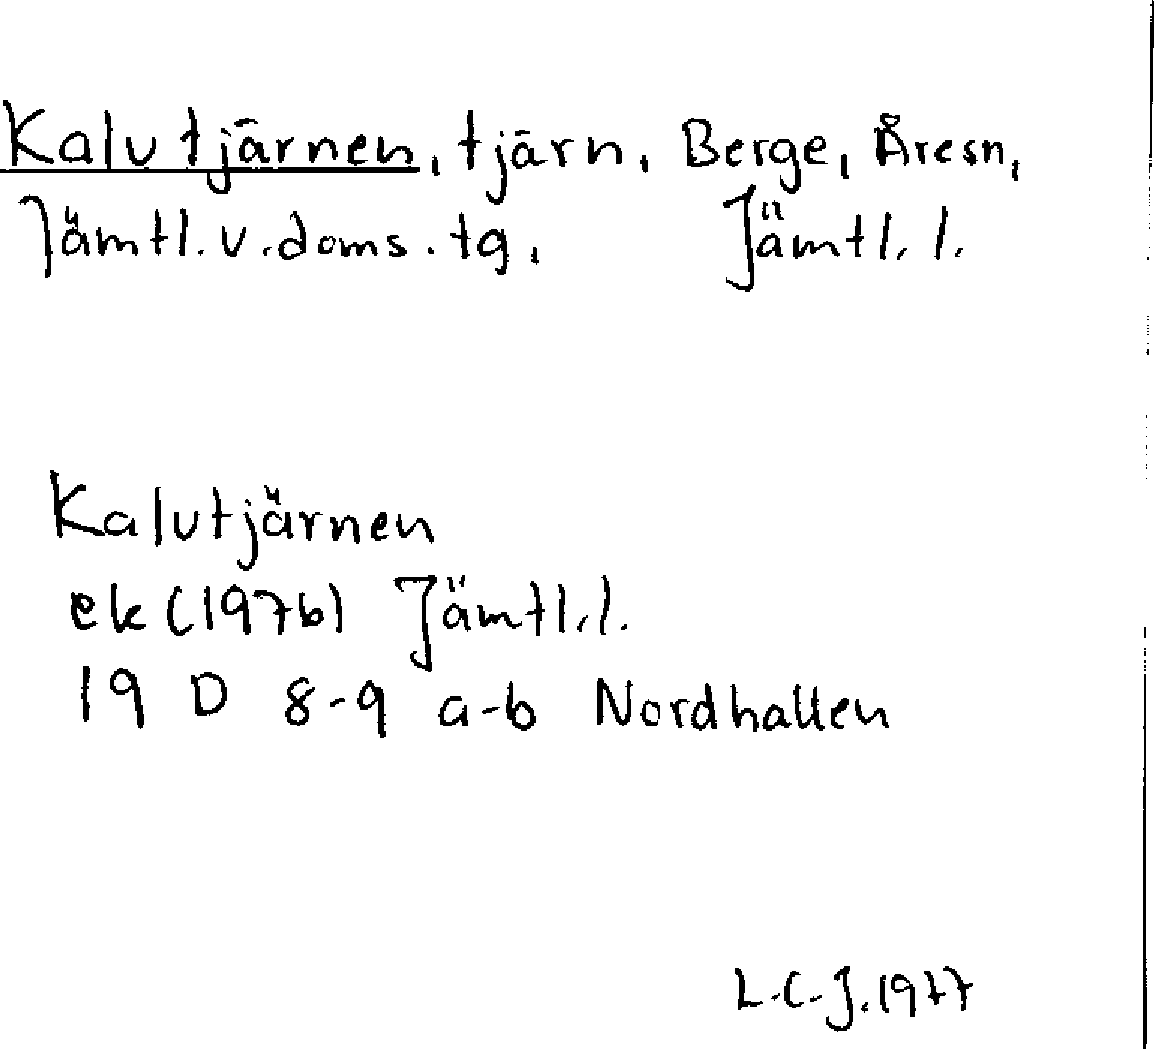 Kalutjärnen, tjärn, Berge, Åresn,
Jämtl.v.doms.tg, Jämtl. l.
Kalutjärnen
ek (1976) Jämtl.l.
19 D 8-9 a-b Nordhallen
L.C.J. 1977